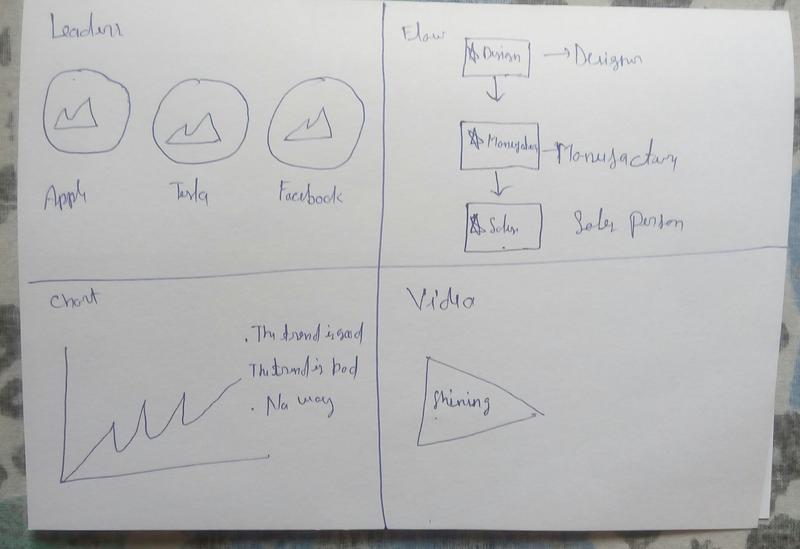 Leaders
Apple
Tesla
Facebook
Flow
Design
Designer
Manufactury
Sales
Sales person
Chart
. The trend is good
The trend is bad
. No way
Video
Shining